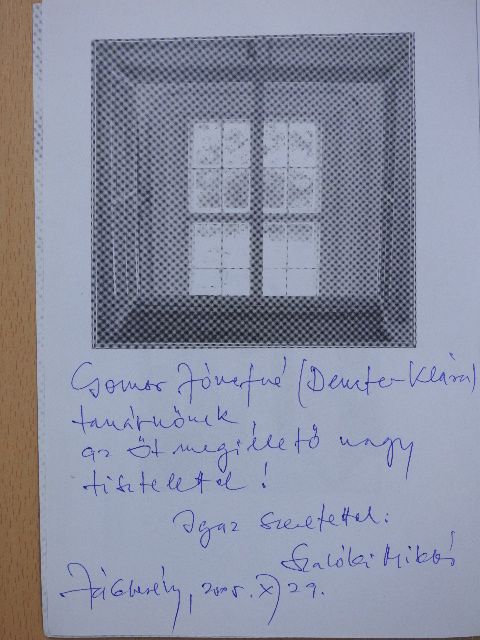 Csomor Józsefné (Demeter Klára)
tanárnőnek
az őt megillető nagy
tisztelettel!
Igaz szeretettel:
Szalóki Miklós
Jászberény, 2005. X. 29.